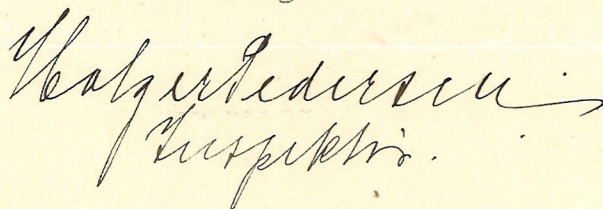 Holger Pedersen.
Inspektör.